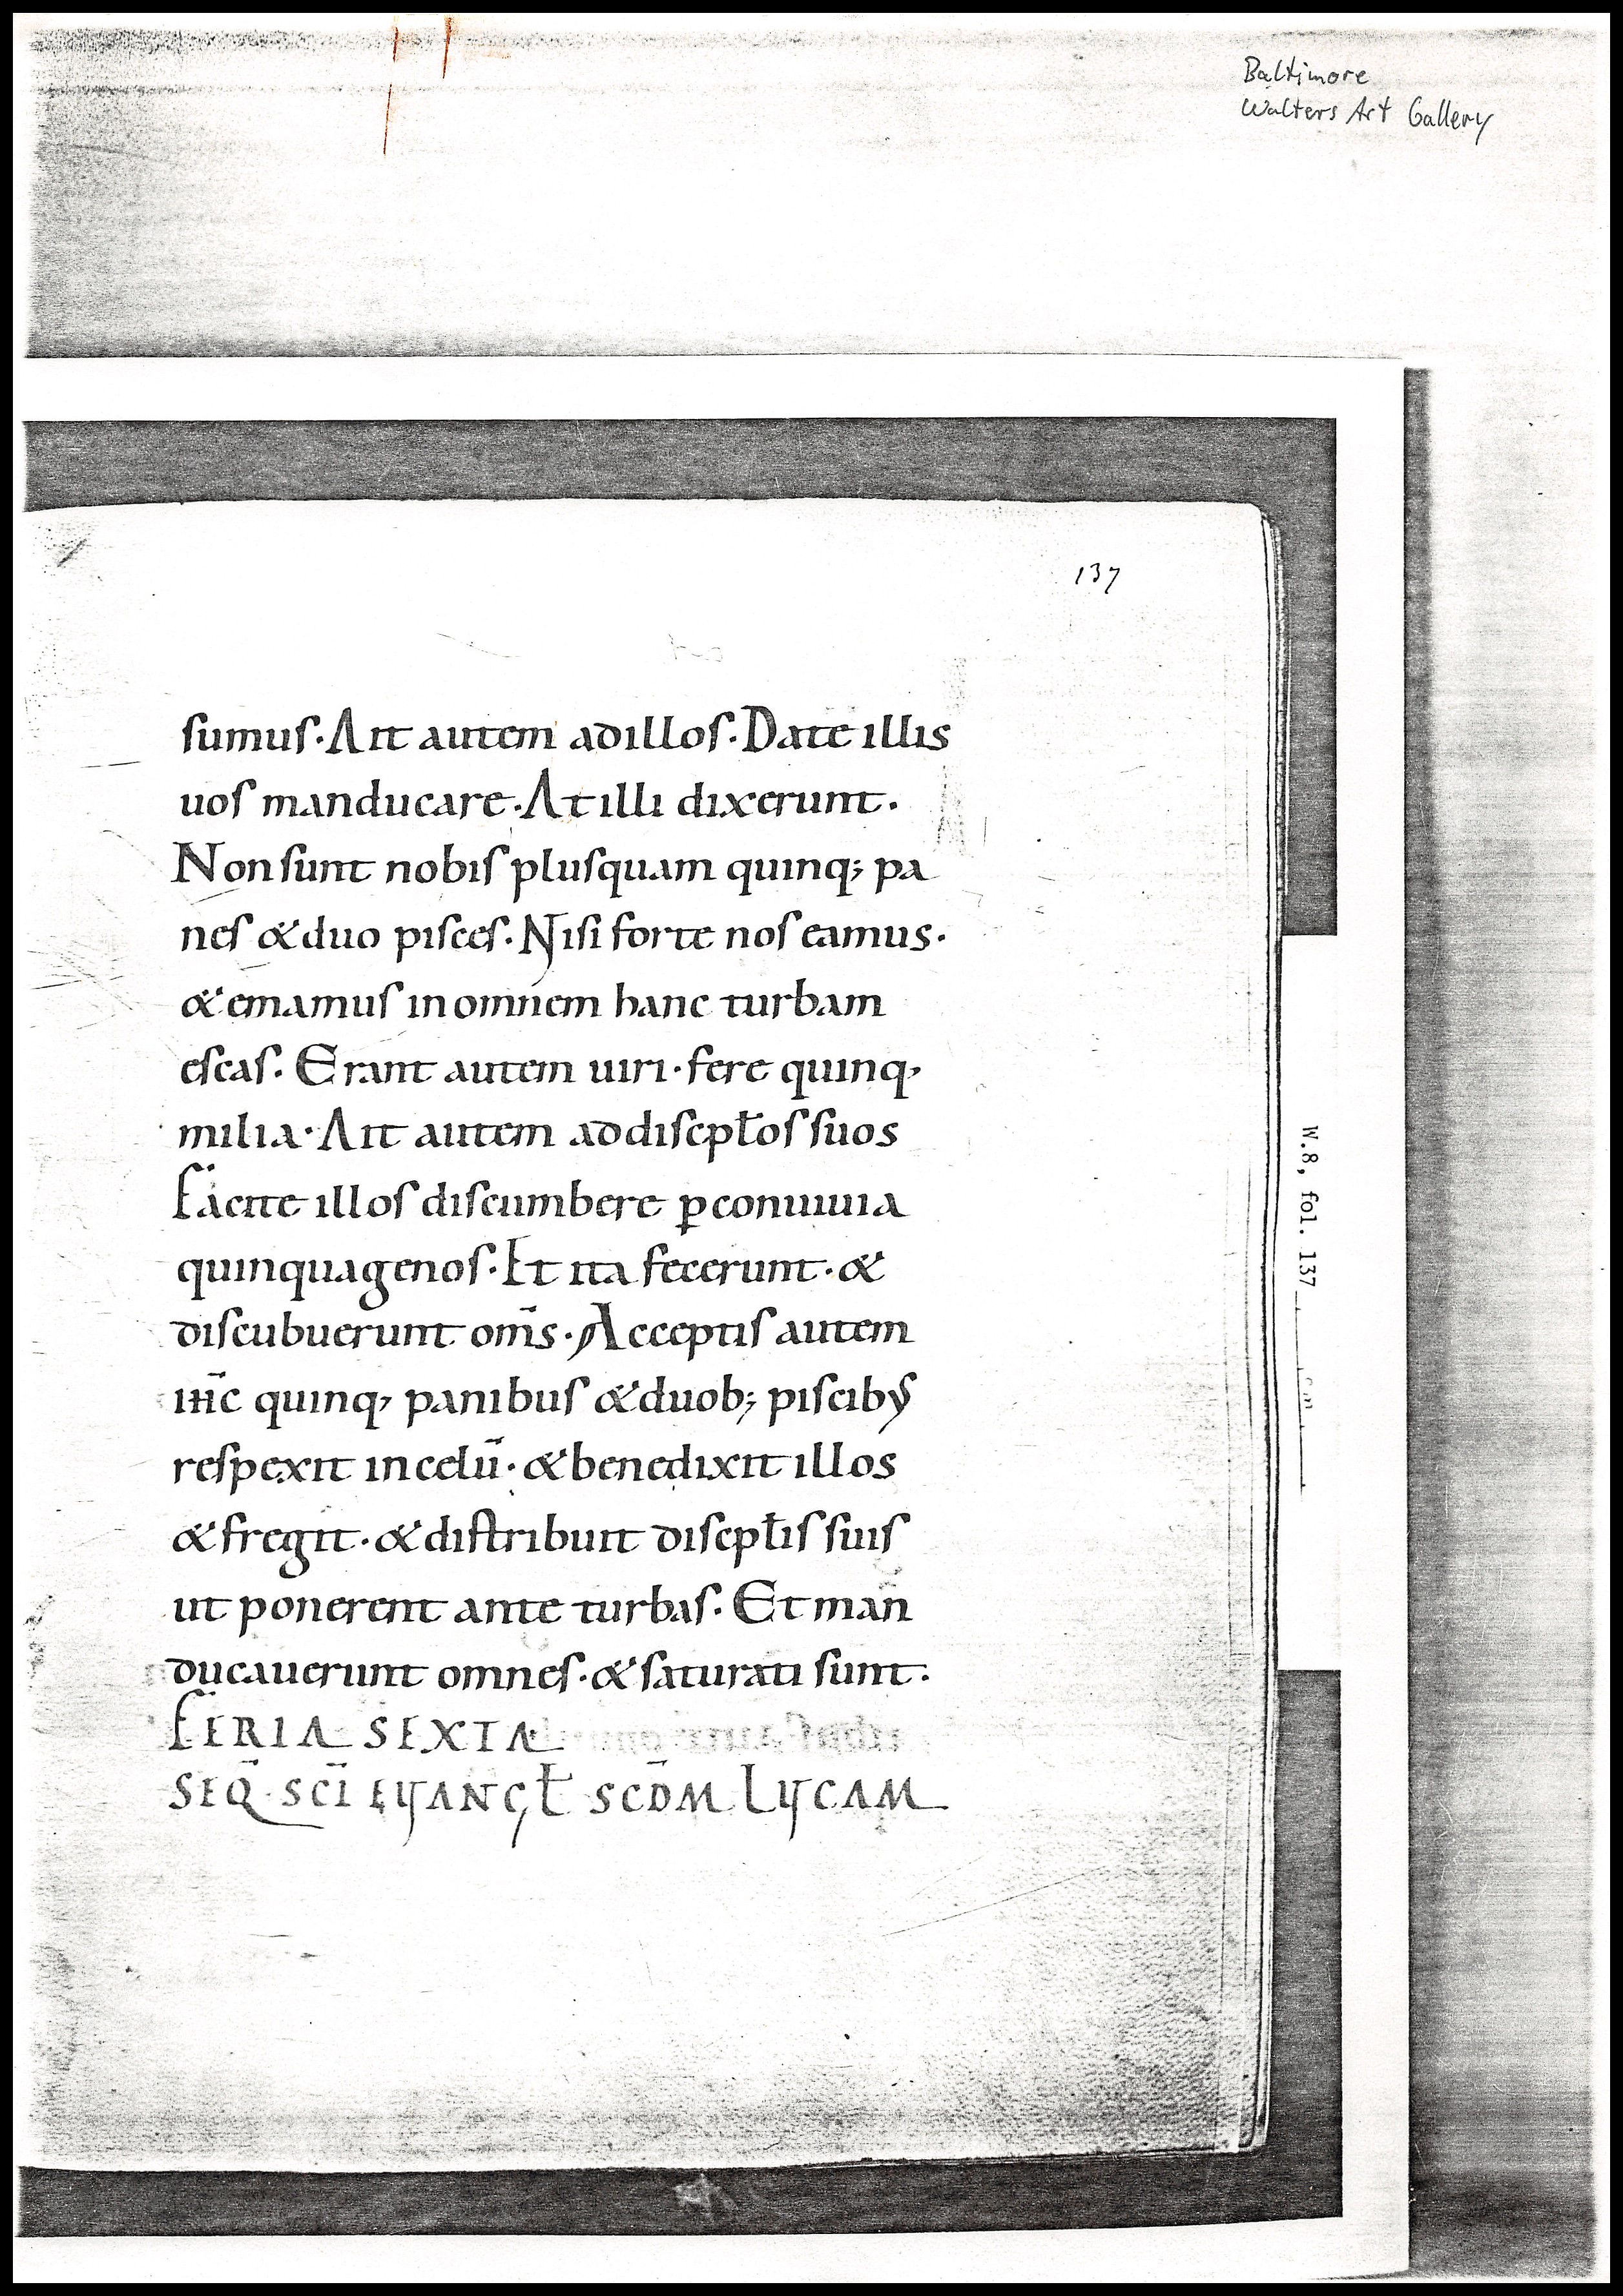 Baltimore
Walters Art Gallery
137
sumus. Ait autem ad illos. Date illis
uos manducare. At illi dixerunt.
Non sunt nobis plusquam quinq; pa
nes & duo pisces. Nisi forte nos eamus.
& emamus in omnem hanc turbam
escas. Erant autem uiri. fere quinq,
milia. Ait autem ad discipƚos suos
Facite illos discumbere ꝑ conuiuia
quinquagenos. Et ita fecerunt. &
discubuerunt om̄s. Acceptis autem
ih̄c quinq, panibus & duob; piscibꝰ
respexit in celū. & benedixit illos
& fregit. & distribuit discipƚis suis
ut ponerent ante turbas. Et man
ducauerunt omnes. & saturati sunt.
FERIA SEXTA
SEQ̄ SCĪ EYANGƚ SCD̄M LYCAM
W.8, fol. 137